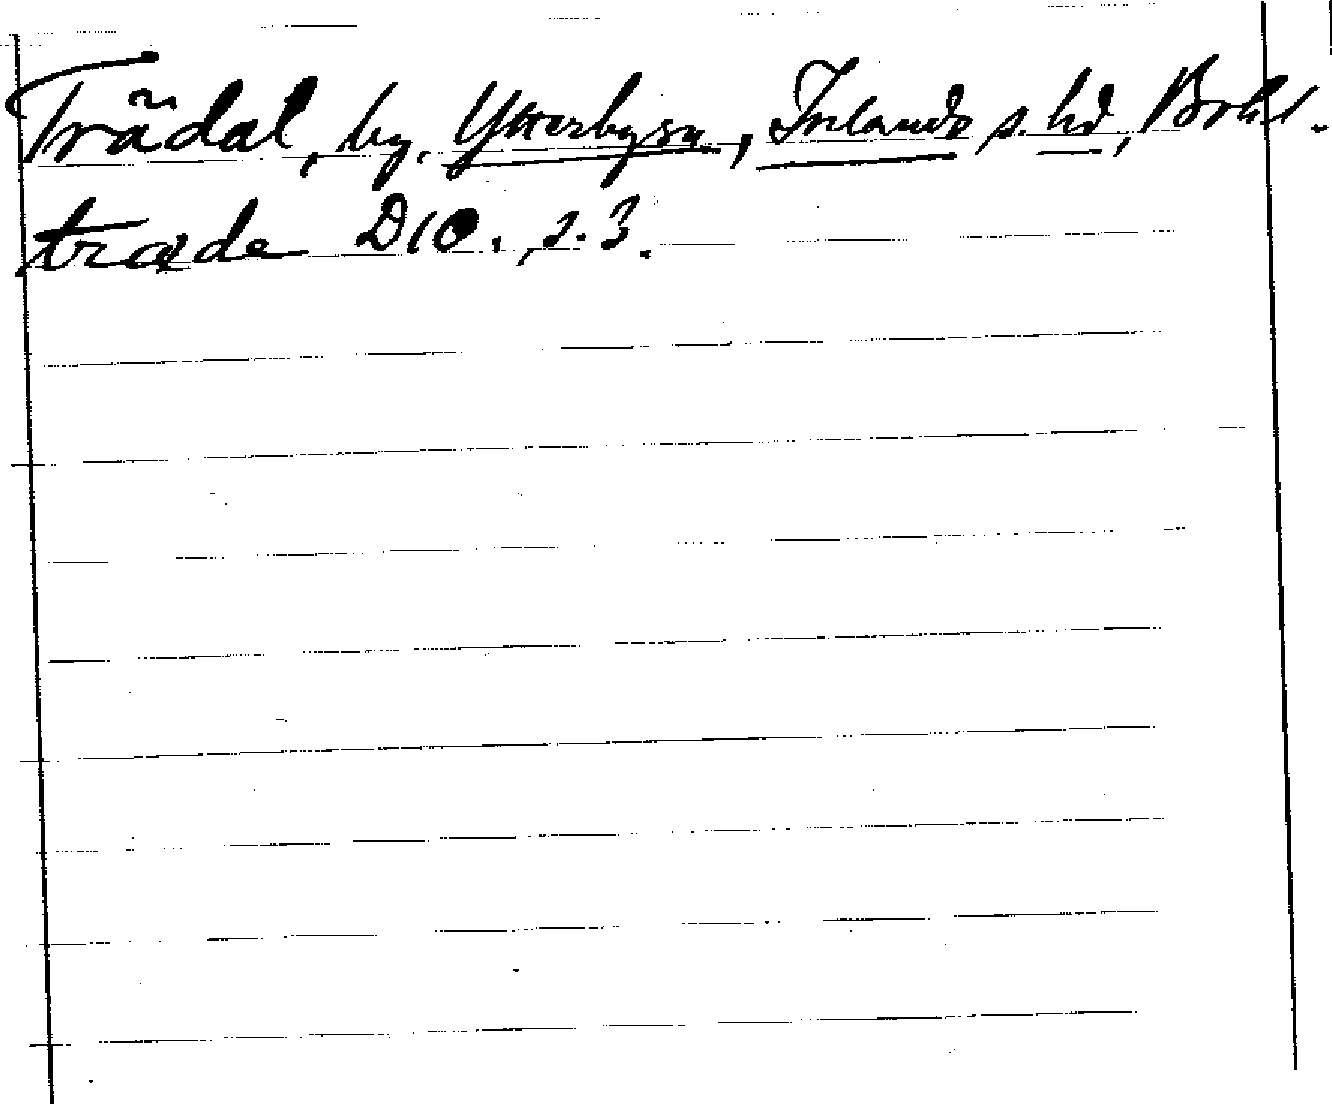 Trädal, by. Ytterbysn, Inlands s. hd, Bohl.
træde D10., s. 3.